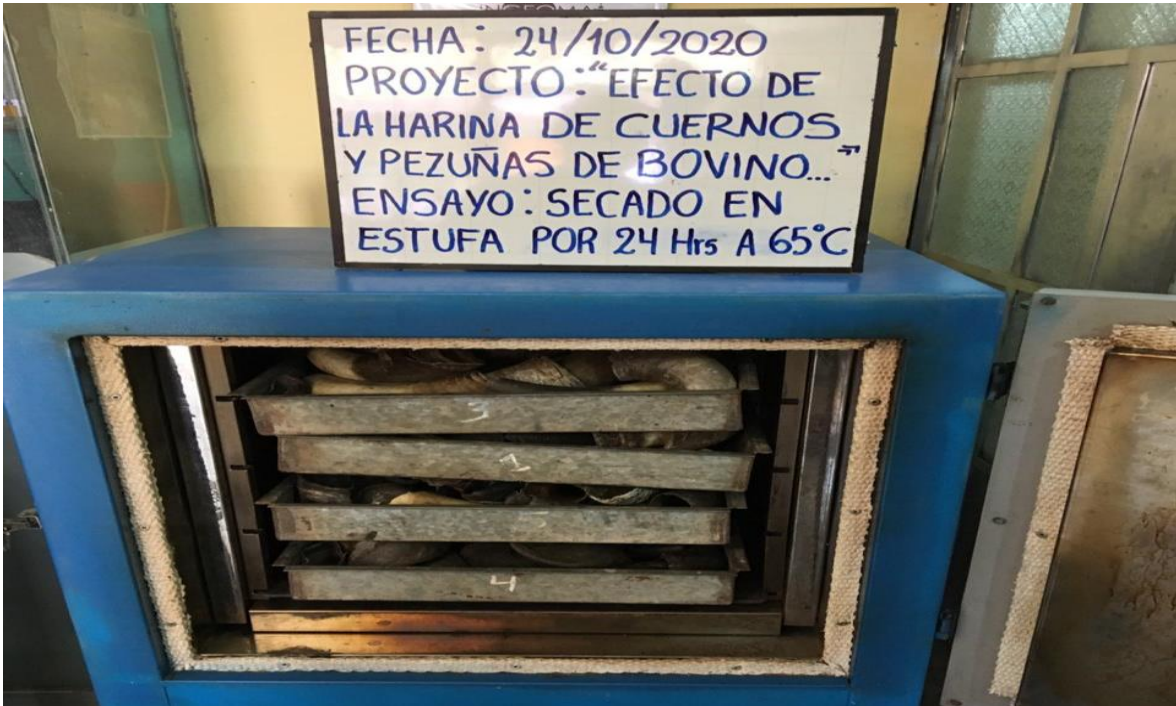 FECHA: 24/10/2020
PROYECTO: "EFECTO DE
LA HARINA DE CUERNOS
Y PEZUÑAS DE BOVINO..."
ENSAYO: SECADO EN
ESTUFA POR 24 Hrs A 65°C
1
4